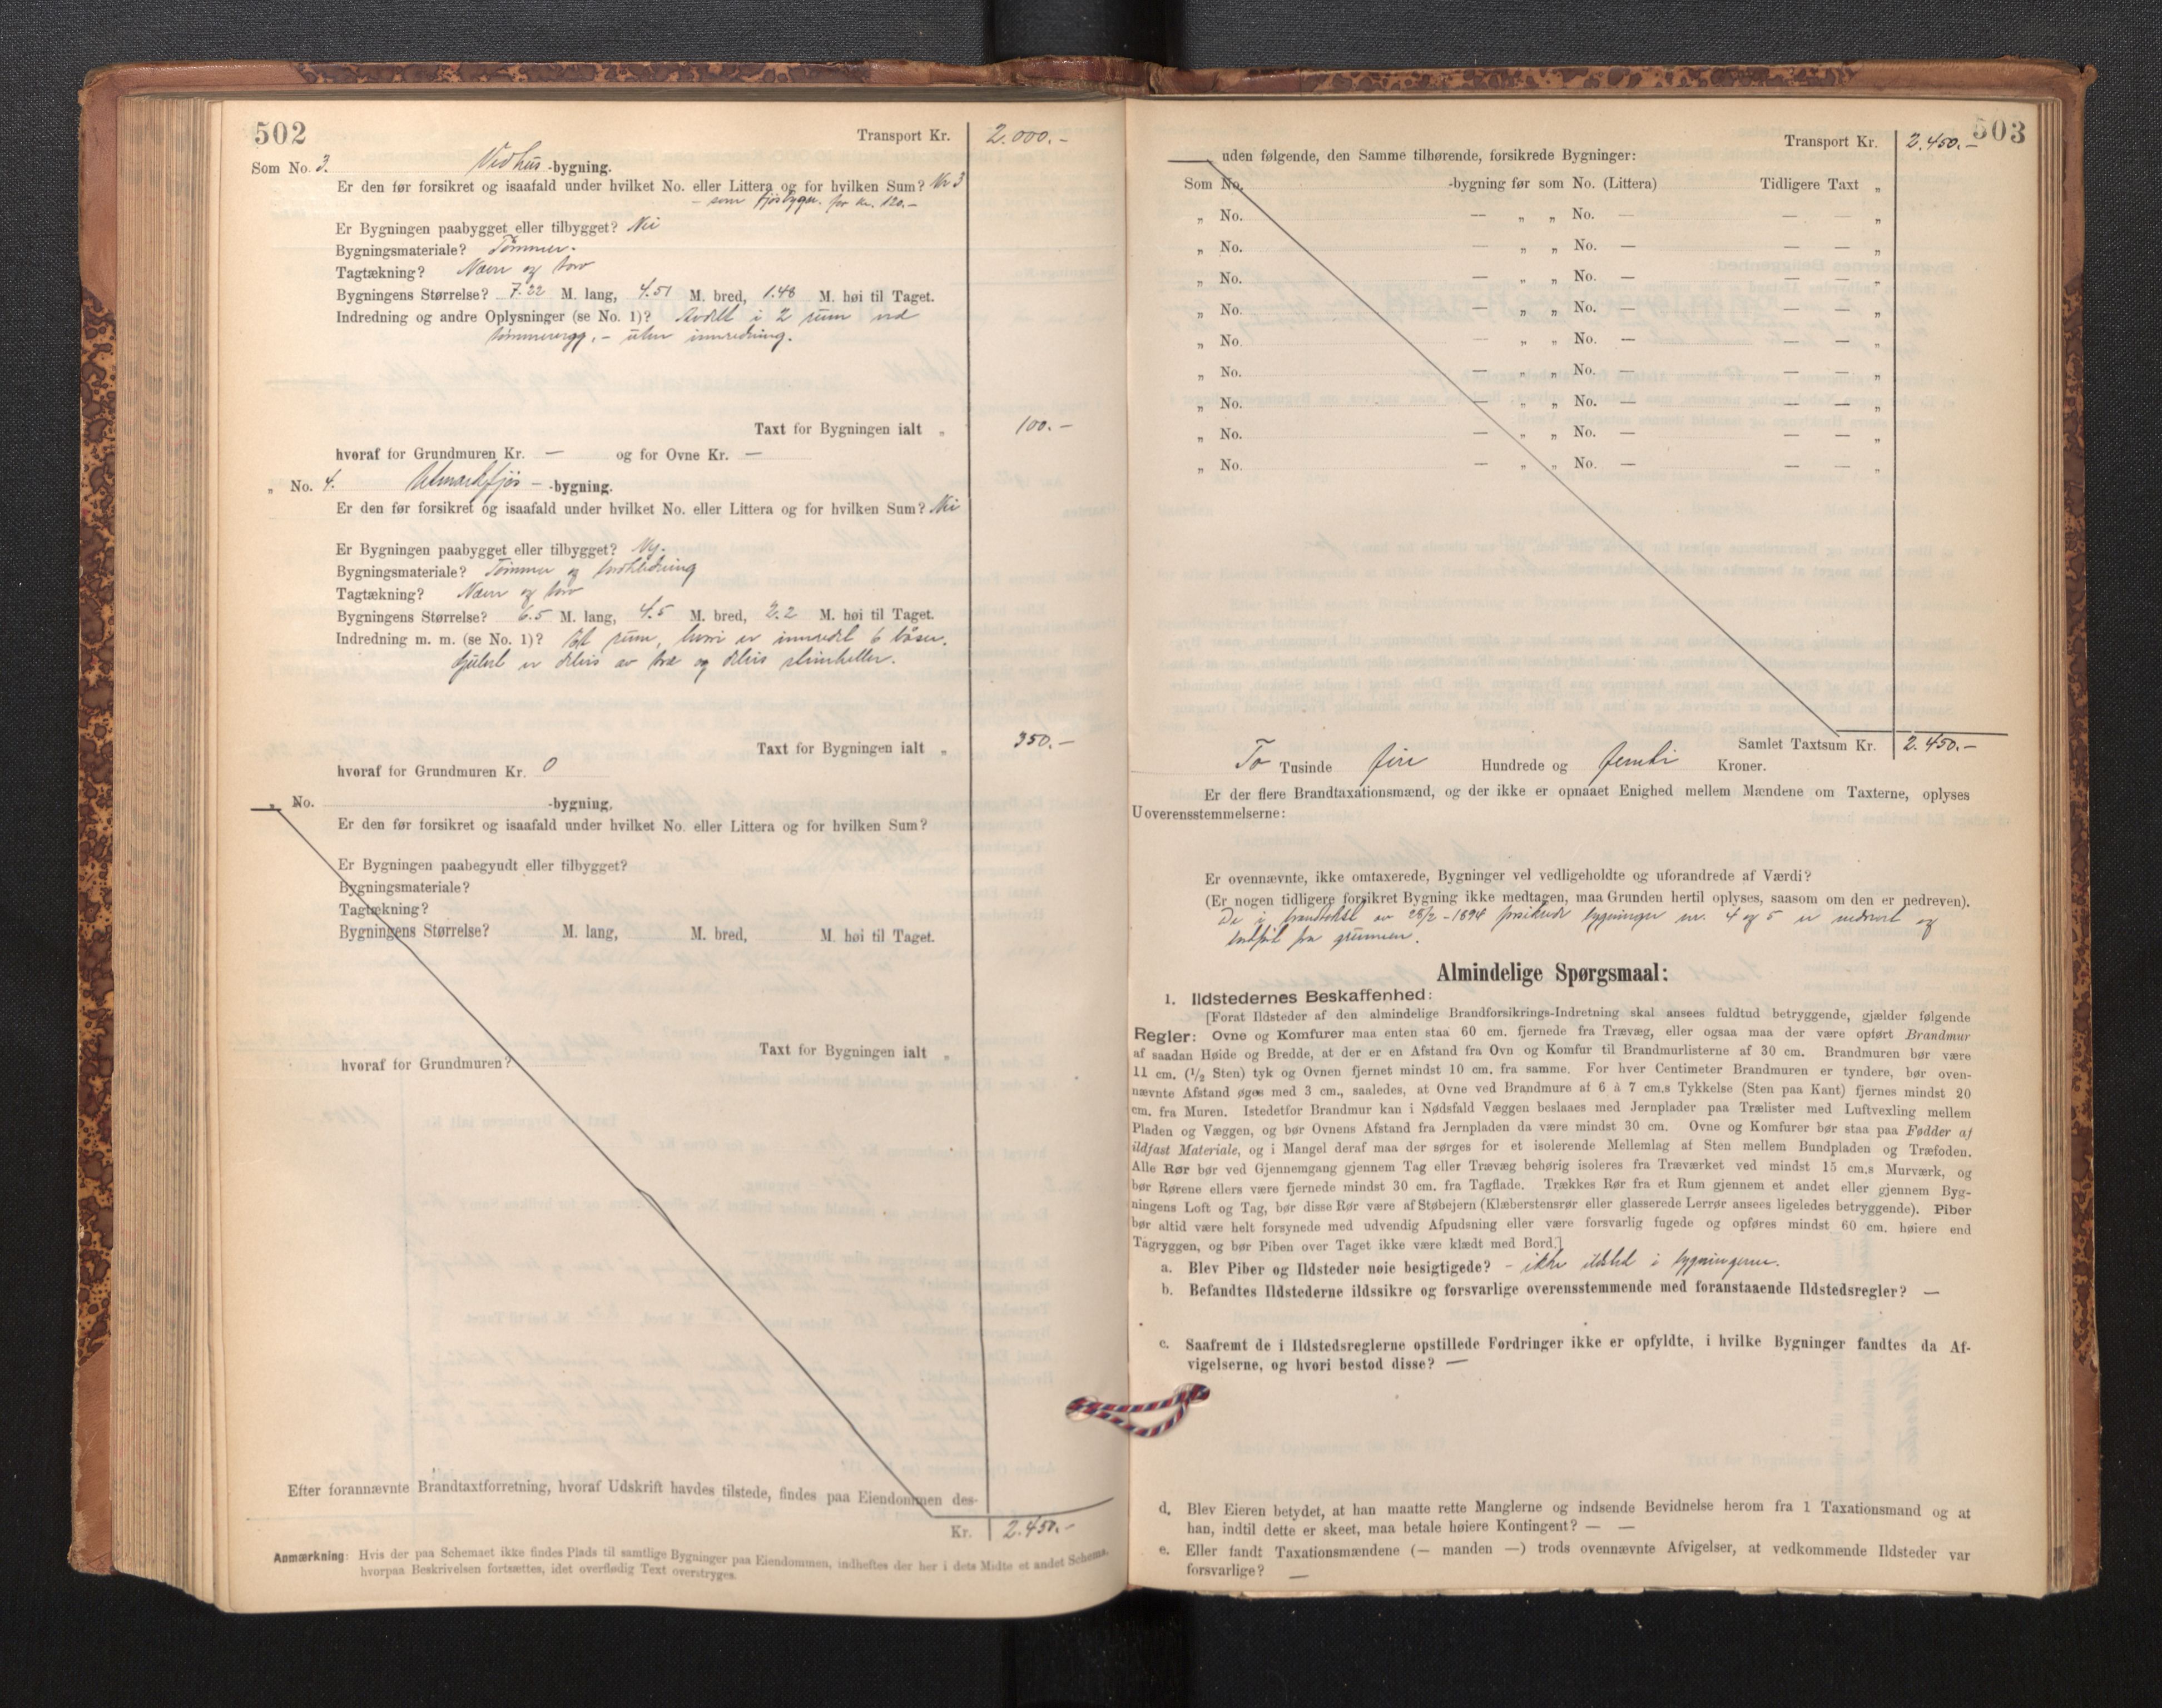 502
Transport Kr. 2.000.-
Som No. 3. Vedhus -bygning.
Er den før forsikret og isaafald under hvilket No. eller Littera og for hvilken Sum? Nr 3
- som fjøsbygn. for kr. 120.-
Er Bygningen paabygget eller tilbygget? Nei
Bygningsmateriale? Tømmer.
Tagtækning? Næver og torv
Bygningens Størrelse? 7.22 M. lang, 4.51 M. bred, 1.48 M. høi til Taget.
Indredning og andre Oplysninger (se No. 1)? Avdelt i 2 rum ved
tømmervegg, - uten innredning.
Taxt for Bygningen ialt „ 100.-
hvoraf for Grundmuren Kr. — og for Ovne Kr. —
„ No. 4. Utmarksfjøs - -bygning.
Er den før forsikret og isaafald under hvilket No. eller Littera og for hvilken Sum? Nei
Er Bygningen paabygget eller tilbygget? Ny.
Bygningsmateriale? Tømmer og bordkledning
Tagtækning? Næver og torv
Bygningens Størrelse? 6.5 M. lang, 4.5 M. bred, 2.2 M. høi til Taget.
Indredning m. m. (se No. 1)? Et rum, hvori er innredet 6 båser.
Gulvet er delvis av tre og delvis stenheller.
Taxt for Bygningen ialt „ 350.-
hvoraf for Grundmuren Kr. 0
„ No. -bygning.
Er den før forsikret og isaafald under hvilket No. eller Littera og for hvilken Sum?
Er Bygningen paabegyndt eller tilbygget?
Bygningsmateriale?
Tagtækning?
Bygningens Størrelse? M. lang, M. bred, M. høi til Taget.
Taxt for Bygningen ialt „
hvoraf for Grundmuren?
Efter forannævnte Brandtaxtforretning, hvoraf Udskrift havdes tilstede, findes paa Eiendommen des-
Kr. 2.450.-
Anmærkning: Hvis der paa Schemaet ikke findes Plads til samtlige Bygninger paa Eiendommen, indheftes der her i dets Midte et andet Schema,
hvorpaa Beskrivelsen fortsættes, idet overflødig Text overstryges.
503
Transport Kr. 2.450.-
uden følgende, den Samme tilhørende, forsikrede Bygninger:
Som No. -bygning før som No. (Littera) Tidligere Taxt „
„ No. — „ „ No. — — — „
„ No. — „ „ No. — — — „
„ No. — „ „ No. — — — „
„ No. — „ „ No. — — — „
„ No. — „ „ No. — — — „
„ No. — „ „ No. — — — „
„ No. — „ „ No. — — — „
„ No. — „ „ No. — — — „
„ No. — „ „ No. — — — „
Samlet Taxtsum Kr. 2.450.-
To Tusinde fire Hundrede og femti Kroner.
Er der flere Brandtaxationsmænd, og der ikke er opnaaet Enighed mellem Mændene om Taxterne, oplyses
Uoverensstemmelserne:
Er ovennævnte, ikke omtaxerede, Bygninger vel vedligeholdte og uforandrede af Værdi?
(Er nogen tidligere forsikret Bygning ikke medtagen, maa Grunden hertil oplyses, saasom om den er nedreven).
De i branntakst av 28/2 - 1894 forsikrede bygninger nr. 4 og 5 er nedrevet og
fra grunnen.
Almindelige Spørgsmaal:
1. Ildstedernes Beskaffenhed:
[Forat Ildsteder af den almindelige Brandforsikrings-Indretning skal ansees fuldtud betryggende, gjælder følgende
Regler: Ovne og Komfurer maa enten staa 60 cm. fjernede fra Trævæg, eller ogsaa maa der være opført Brandmur
af saadan Høide og Bredde, at der er en Afstand fra Ovn og Komfur til Brandmurlisterne af 30 cm. Brandmuren bør være
11 cm. (1/2 Sten) tyk og Ovnen fjernet mindst 10 cm. fra samme. For hver Centimeter Brandmuren er tyndere, bør oven-
nævnte Afstand øges med 3 cm., saaledes, at Ovne ved Brandmure af 6 à 7 cm.s Tykkelse (Sten paa Kant) fjernes mindst 20
cm. fra Muren. Istedetfor Brandmur kan i Nødsfald Væggen beslaaes med Jernplader paa Trælister med Luftvexling mellem
Pladen og Væggen, og bør Ovnens Afstand fra Jernpladen da være mindst 30 cm. Ovne og Komfurer bør staa paa Fødder af
ildfast Materiale, og i Mangel deraf maa der sørges for et isolerende Mellemlag af Sten mellem Bundpladen og Træfoden.
Alle Rør bør ved Gjennemgang gjennem Tag eller Trævæg behørig isoleres fra Træværket ved mindst 15 cm.s Murværk, og
bør Rørene ellers være fjernede mindst 30 cm. fra Tagflade. Trækkes Rør fra et Rum gjennem et andet eller gjennem Byg-
ningens Loft og Tag, bør disse Rør være af Støbejern (Klæberstensrør eller glasserede Lerrør ansees ligeledes betryggende). Piber
bør altid være helt forsynede med udvendig Afpudsning eller være forsvarlig fugede og opføres mindst 60 cm. høiere end
Tagryggen, og bør Piben over Taget ikke være klædt med Bord.]
a. Blev Piber og Ildsteder nøie besigtigede? - ikke ildsted i bygningene.
b. Befandtes Ildstederne ildssikre og forsvarlige overensstemmende med foranstaaende Ildstedsregler? —
c. Saafremt de i Ildstedsreglerne opstillede Fordringer ikke er opfyldte, i hvilke Bygninger fandtes da Af-
vigelserne, og hvori bestod disse? —
d. Blev Eieren betydet, at han maatte rette Manglerne og indsende Bevidnelse herom fra 1 Taxationsmand og at
han, indtil dette er skeet, maa betale høiere Kontingent? — —
e. Eller fandt Taxationsmændene (— manden —) trods ovennævnte Afvigelser, at vedkommende Ildsteder var
forsvarlige? —